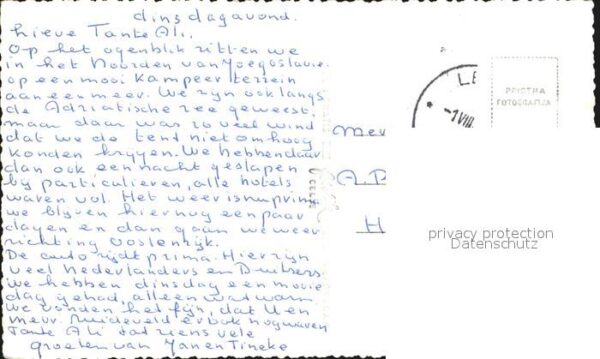 dinsdagavond.
Lieve Tante Ali,
Op het ogenblik zitten we
in het Noorden van Joegoslavie
op een mooi Kampeerterrein
aan een meer. We zijn ook langs
de Adriatische zee geweest,
maar daar was zo veel wind
dat we de tent niet omhoog
konden krijgen. We hebben daar
dan ook een nacht geslapen
bij particulieren, alle hotels
waren vol. Het weer is nu prima
we blijven hier nog een paar
dagen en dan gaan we weer
richting Oostenrijk.
De auto rijdt prima. Hier zijn
veel Nederlanders en Duitsers
we hebben dinsdag een mooie
dag gehad, alleen wat warm
we vonden het fijn, dat U en
mevr. er ook nog waren
Tante Ali tot ziens vele
groeten van Jan en Tineke
Mev
A B
H
LE
-1 VIII
PRISTNA
FOTOGRAFIJA
privacy protection
Datenschutz